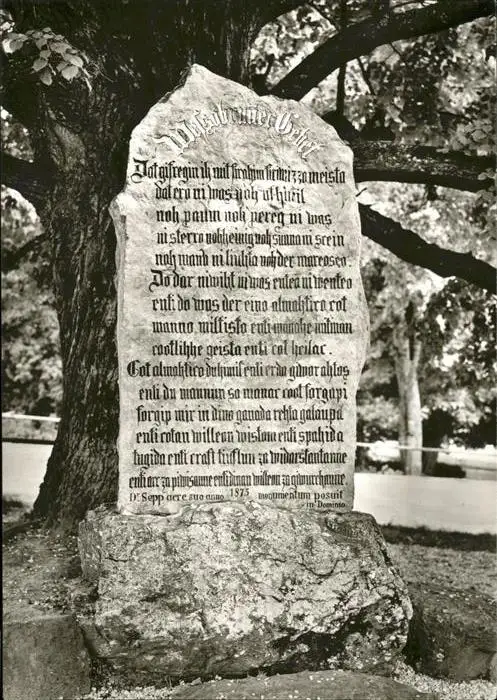 Wessobrunner Gebet
Dat gifregin ih mit firahim firiwizzo meista
dat ero ni was noh ufhimil
noh paum noh pereg ni was
ni sterro noh heinig noh sunna ni scein
noh mano ni liuhta noh der mareoseo
Do dar niwiht ni was enteo ni wenteo
enti do was der eino almahtico cot
manno miltisto enti manake mitman
cootlihhe geista enti cot heilac.
Cot almahtico du himil enti erda gaworahtos
enti du mannun so manac coot forgapi
forgip mir in dino ganada rehta galaupa
enti cotan willeon wistom enti spahida
tugida enti craft tiuflun za widarstantanne
enti arc za piwisanne enti dinan willeon za giwurchanne.
Dr Sepp aere suo anno 1875 monumentum posuit
in Domino